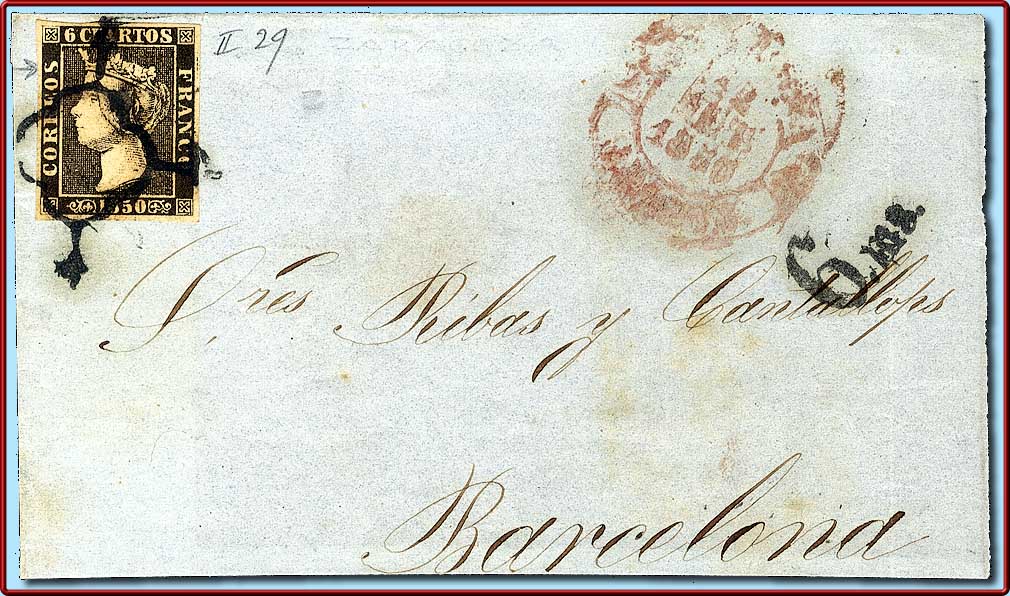 6 CUARTOS
CORREOS
FRANCO
1850
II 29
6 Ms.
Sres Ribas y Cantallops
Barcelona